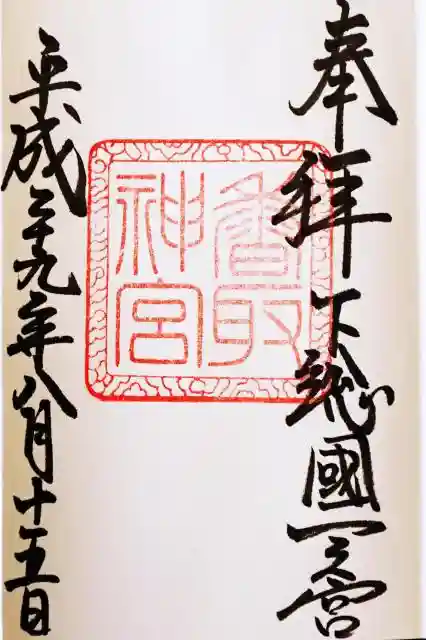 奉拝 下総國一之宮
香取
神宮
平成二十九年八月十五日